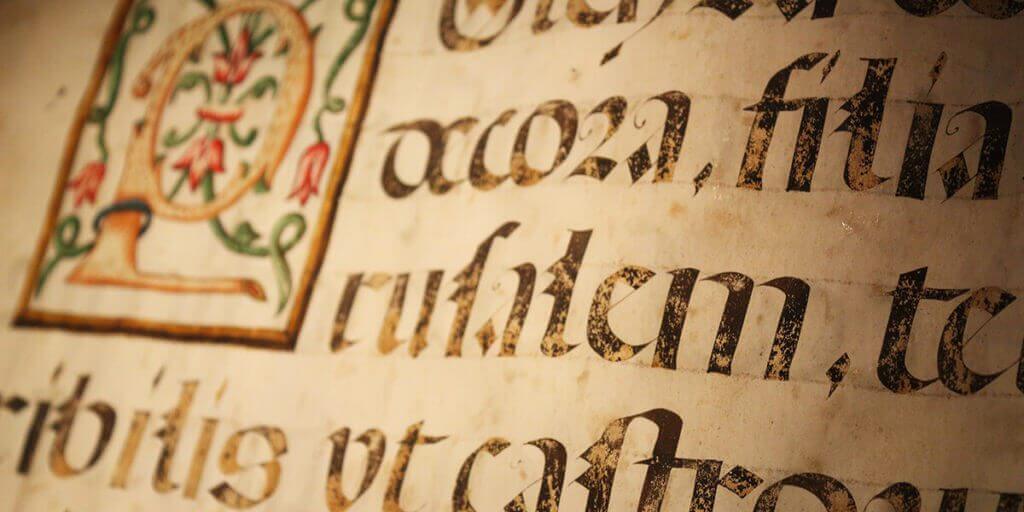 decora, filia
rusalem, te
ribilis vt castro